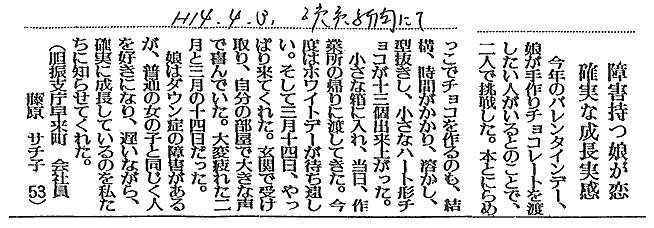 H14.4.13. 読売新聞にて
障害持つ娘が恋
確実な成長実感
今年のバレンタインデー、
娘が手作りチョコレートを渡
したい人がいるとのことで、
二人で挑戦した。本とにらめ
っこでチョコを作るのも、結
構、時間がかかり、溶かし、
型抜きし、小さなハート形チ
ョコが十三個出来上がった。
小さな箱に入れ、当日、作
業所の帰りに渡してきた。今
度はホワイトデーが待ち遠し
い。そして三月十四日、やっ
ぱり来てくれた。玄関で受け
取り、自分の部屋で大きな声
で喜んでいた。大変疲れた二
月と三月の十四日だった。
娘はダウン症の障害がある
が、普通の女の子と同じく人
を好きになり、遅いながら、
確実に成長しているのを私た
ちに知らせてくれた。
(胆振支庁早来町 会社員
藤原 サチ子 53)